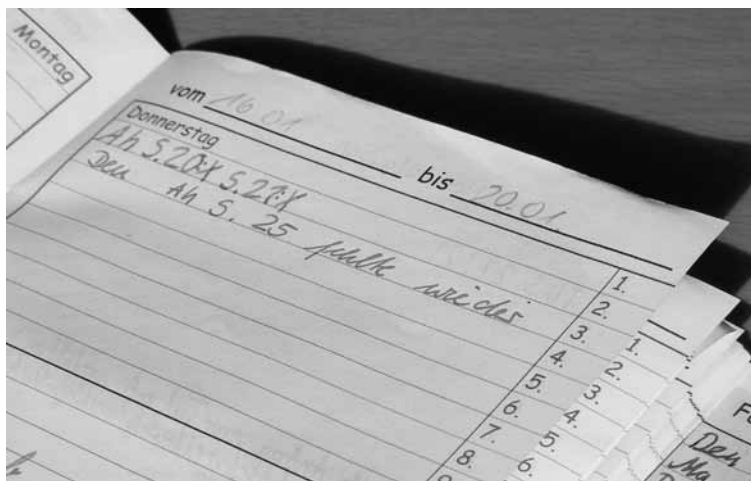 Montag
vom 16 01 bis 20.01.
Donnerstag
Ah S. 20:X S. 21:X
Den Ah S. 25 fehlte wieder
1.
2.
3.
4.
5.
6.
7.
8.
1.
2.
3.
4.
5.
6.
Den
Ma